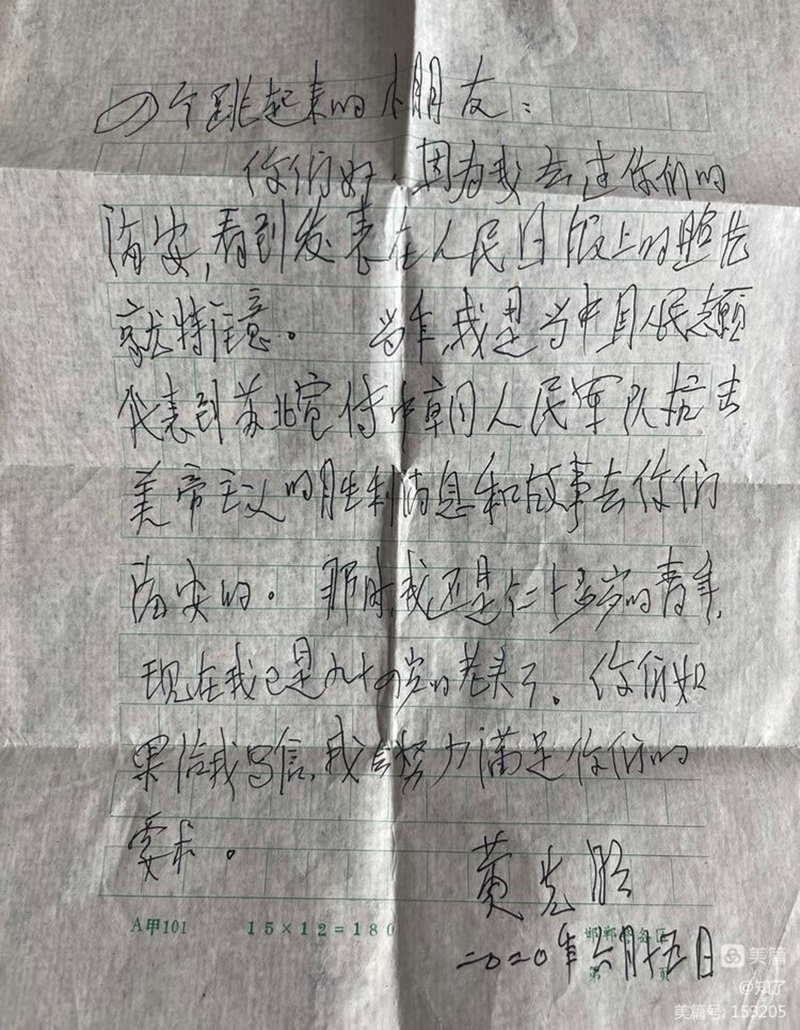 四个跳起来的小朋友：
你们好，因为我去过你们的
海安，看到发表在人民日报上的照片
就特注意。当年，我是当中国人民志愿
代表到苏北宣传中朝人民军队抗击
美帝主义的胜利消息和故事去你们
海安的。那时，我还是二十多岁的青年，
现在我已是九十四岁的老头了。你们如
果给我写信，我会努力满足你们的
要求。
黄克
二〇二〇年六月十五日
A甲101 15×12=180
美篇
@知了
美篇号: 153205